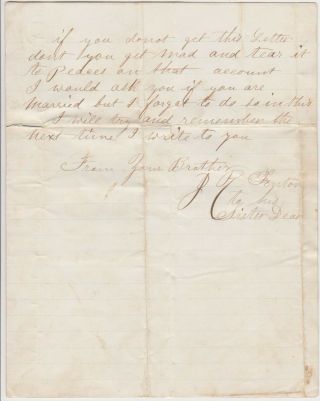 if you donot get this Letter
dont you get mad and tear it
to Peaces on that account
I would ask you if you are
married but I forgot to do so in this
I will try and remember the
next time I write to you
From Your Brother
to his
Sister Dear